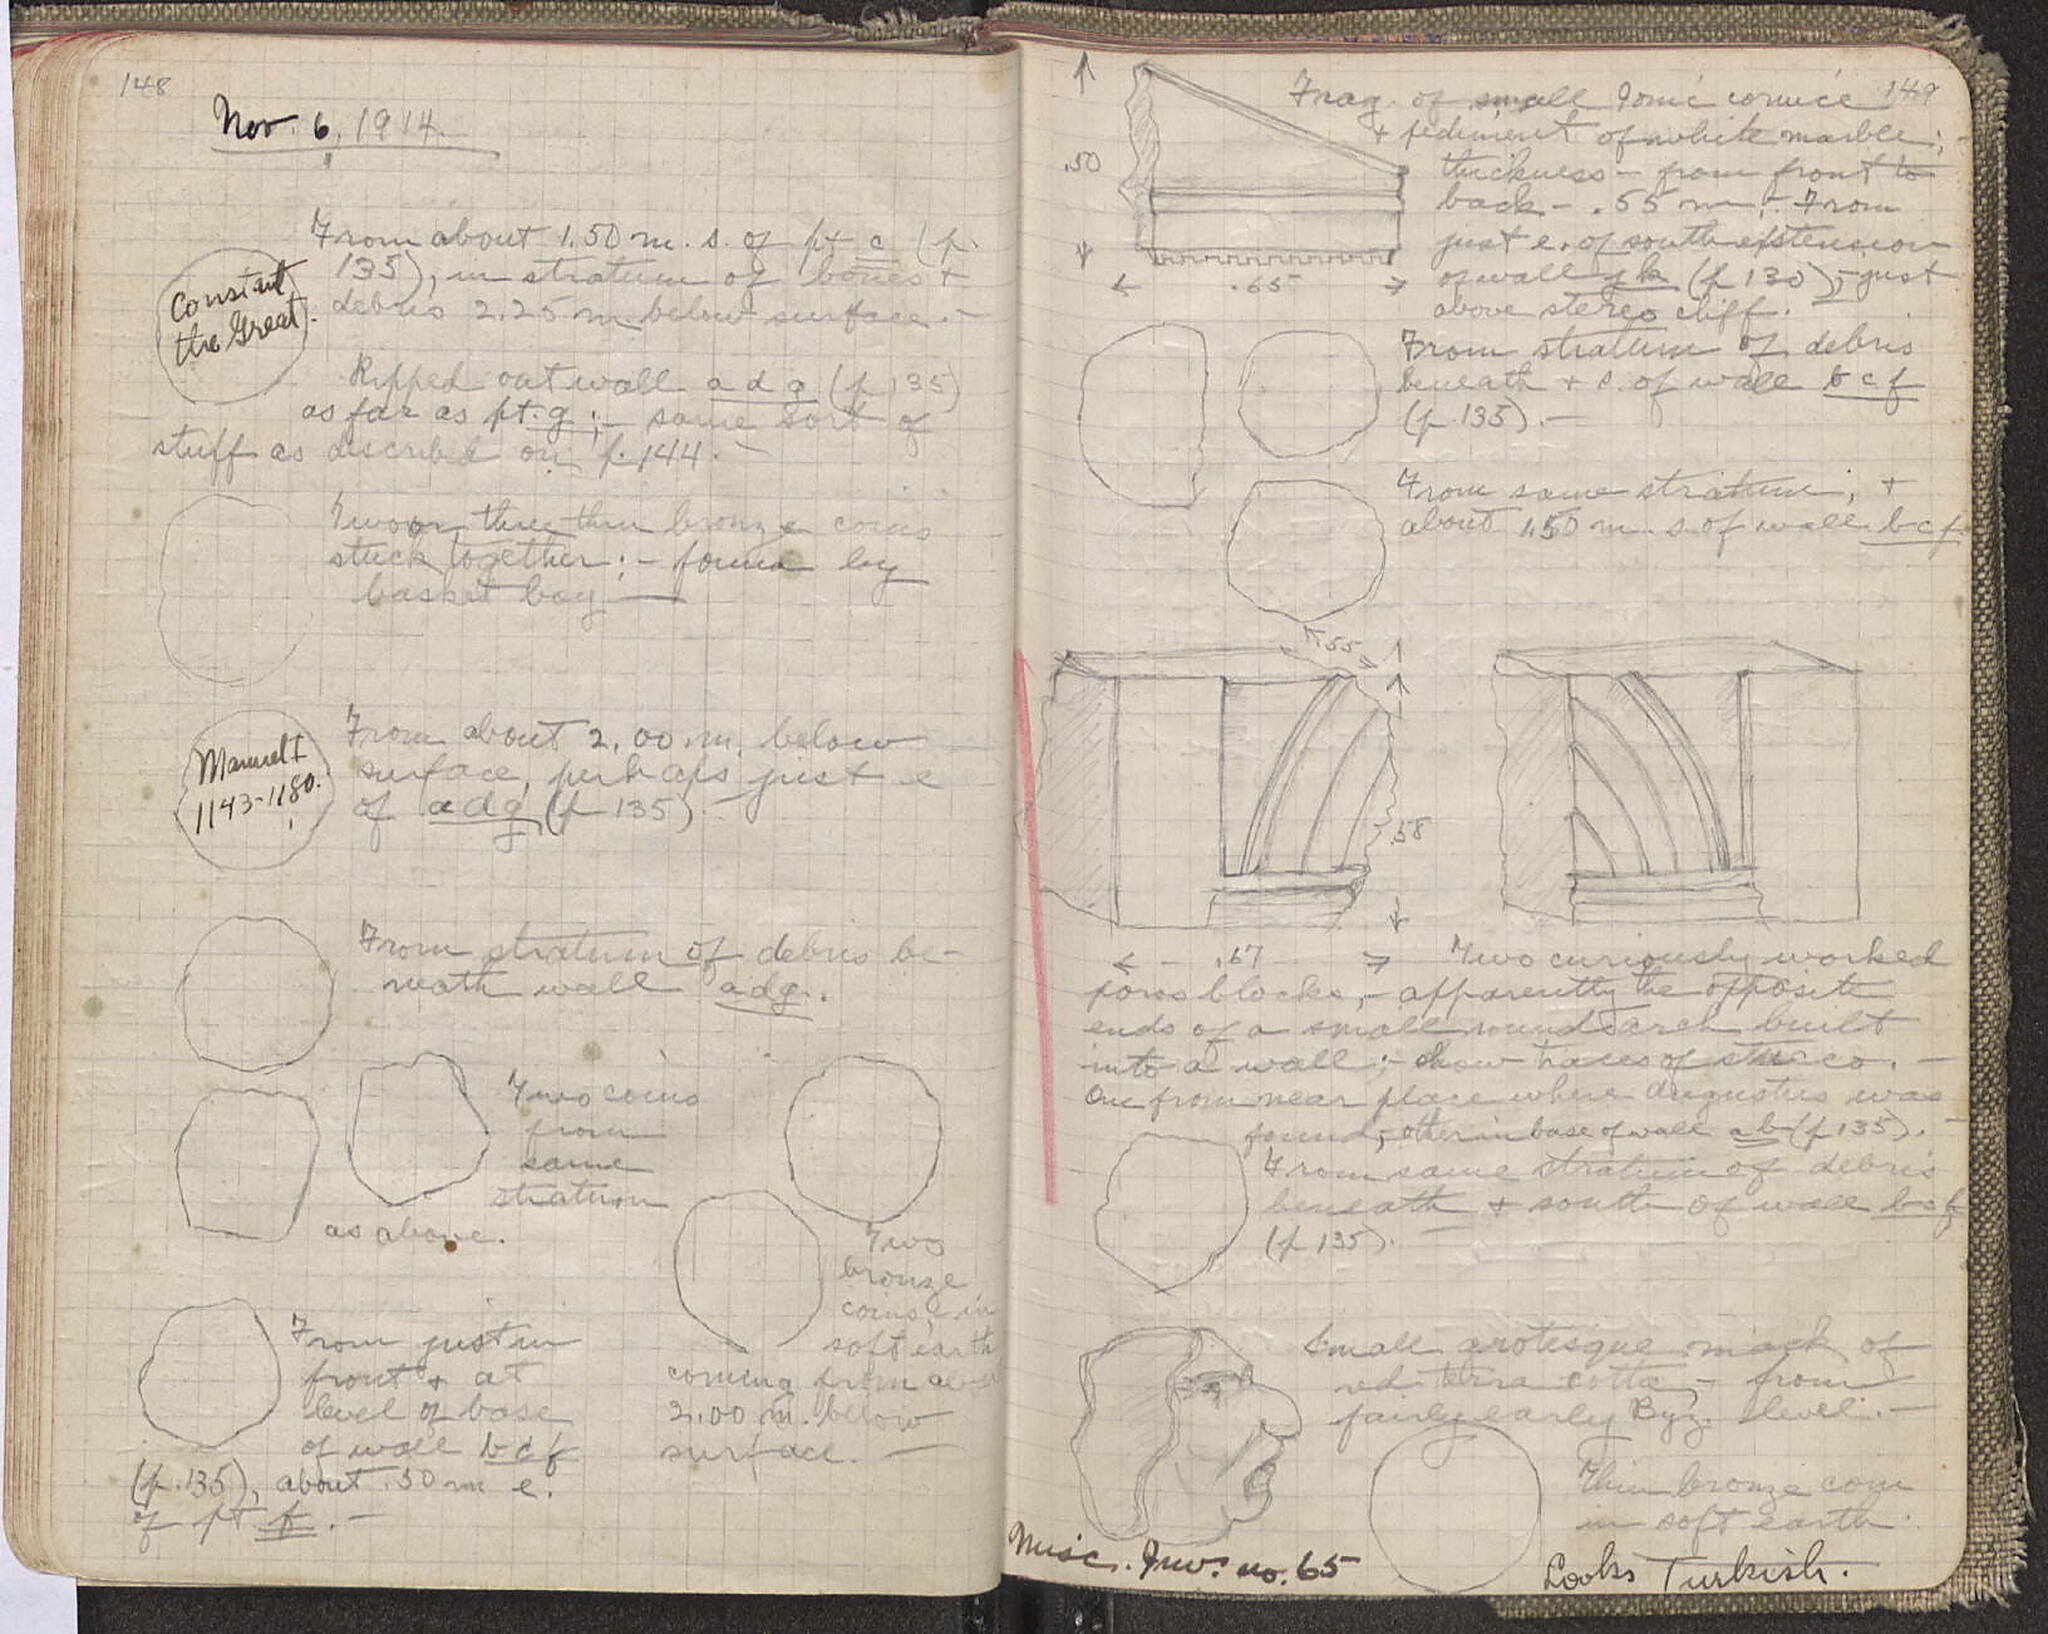 148
Nov. 6, 1914.
From about 1.50 m. s. of pt c (p.
135), in stratum of bones +
debris 2.25 m. below surface. —
Constant
the Great.
Ripped out wall a d g (p 135)
as far as pt. g ; — same sort of
stuff as described on p. 144. —
Two or three thin bronze coins
stuck together ; — found by
basket boy —
From about 2.00 m. below
surface, perhaps just e
of adg (p 135). —
Manuel I
1143-1180.
From stratum of debris be-
neath wall adg.
Two coins
from
same
stratum
as above.
Two
bronze
coins, in
soft earth
coming from about
2.00 m. below
surface. —
From just in
front + at
level of base
of wall b c f
(p. 135), about .50 m e.
of pt f. —
149
Frag. of small Ionic cornice
+ pediment of white marble ; —
thickness — from front to
back — .55 m ; — From
just e. of south extension
of wall jk (p 130) ; — just
above stereo cliff. —
.50
.65
From stratum of debris
beneath + s. of wall b c f
(p. 135). —
From same stratum, +
about 1.50 m. s. of wall b c f.
.55
.58
.67
Two curiously worked
poros blocks, — apparently the opposite
ends of a small round arch built
into a wall ; — show traces of stucco. —
One from near place where Augustus was
found, — other in base of wall ab (p 135). —
From same stratum of debris
beneath + south of wall bcf
(p 135). —
Small grotesque mask of
red terra cotta, — from
fairly early Byz. level. —
Misc. Inv. no. 65
Thin bronze coin
in soft earth.
Looks Turkish.